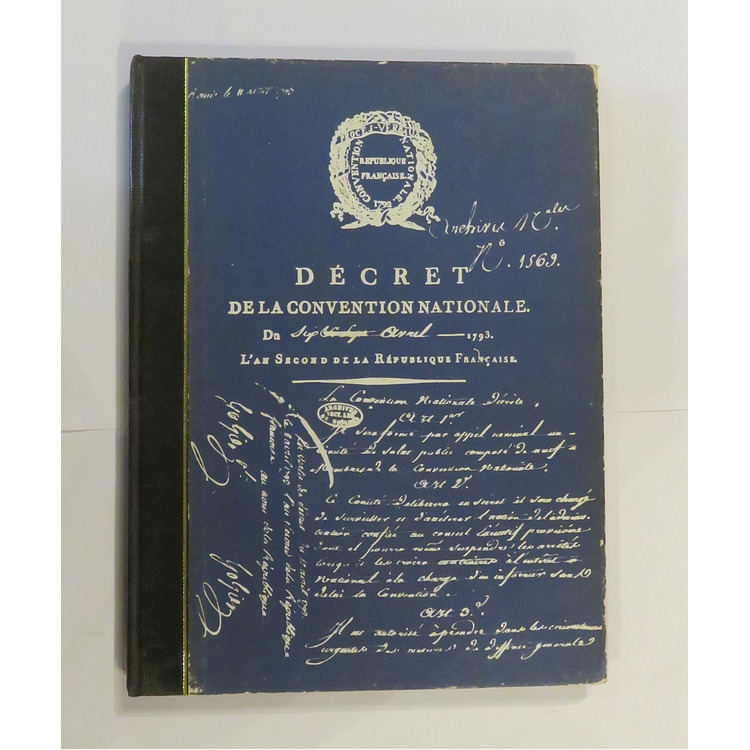 PROCES-VERBAUX
CONVENTION NATIONALE
REPUBLIQUE
FRANÇAISE.
1792
Archives N.ales
N.º 1569.
DÉCRET
DE LA CONVENTION NATIONALE.
Du Six avril 1793.
L'AN SECOND DE LA RÉPUBLIQUE FRANÇAISE.
La Convention Nationale Décrète,
Art 1er
Il sera formé par appel nominal un
Comité de salut public composé de neuf
Membres de la Convention Nationale.
Art 2.
Le Comité délibérera en secret il sera chargé
de surveiller et d'accélérer l'action de l'adminis-
tration confiée au conseil exécutif provisoire
dont il pourra même suspendre les arrêtés
lorsqu'il les croira contraires à l'intérêt
National à la charge d'en informer sans
délai la Convention.
Art 3.
Il est autorisé à prendre dans les circonstances
urgentes des mesures de défense générale
ARCHIVES